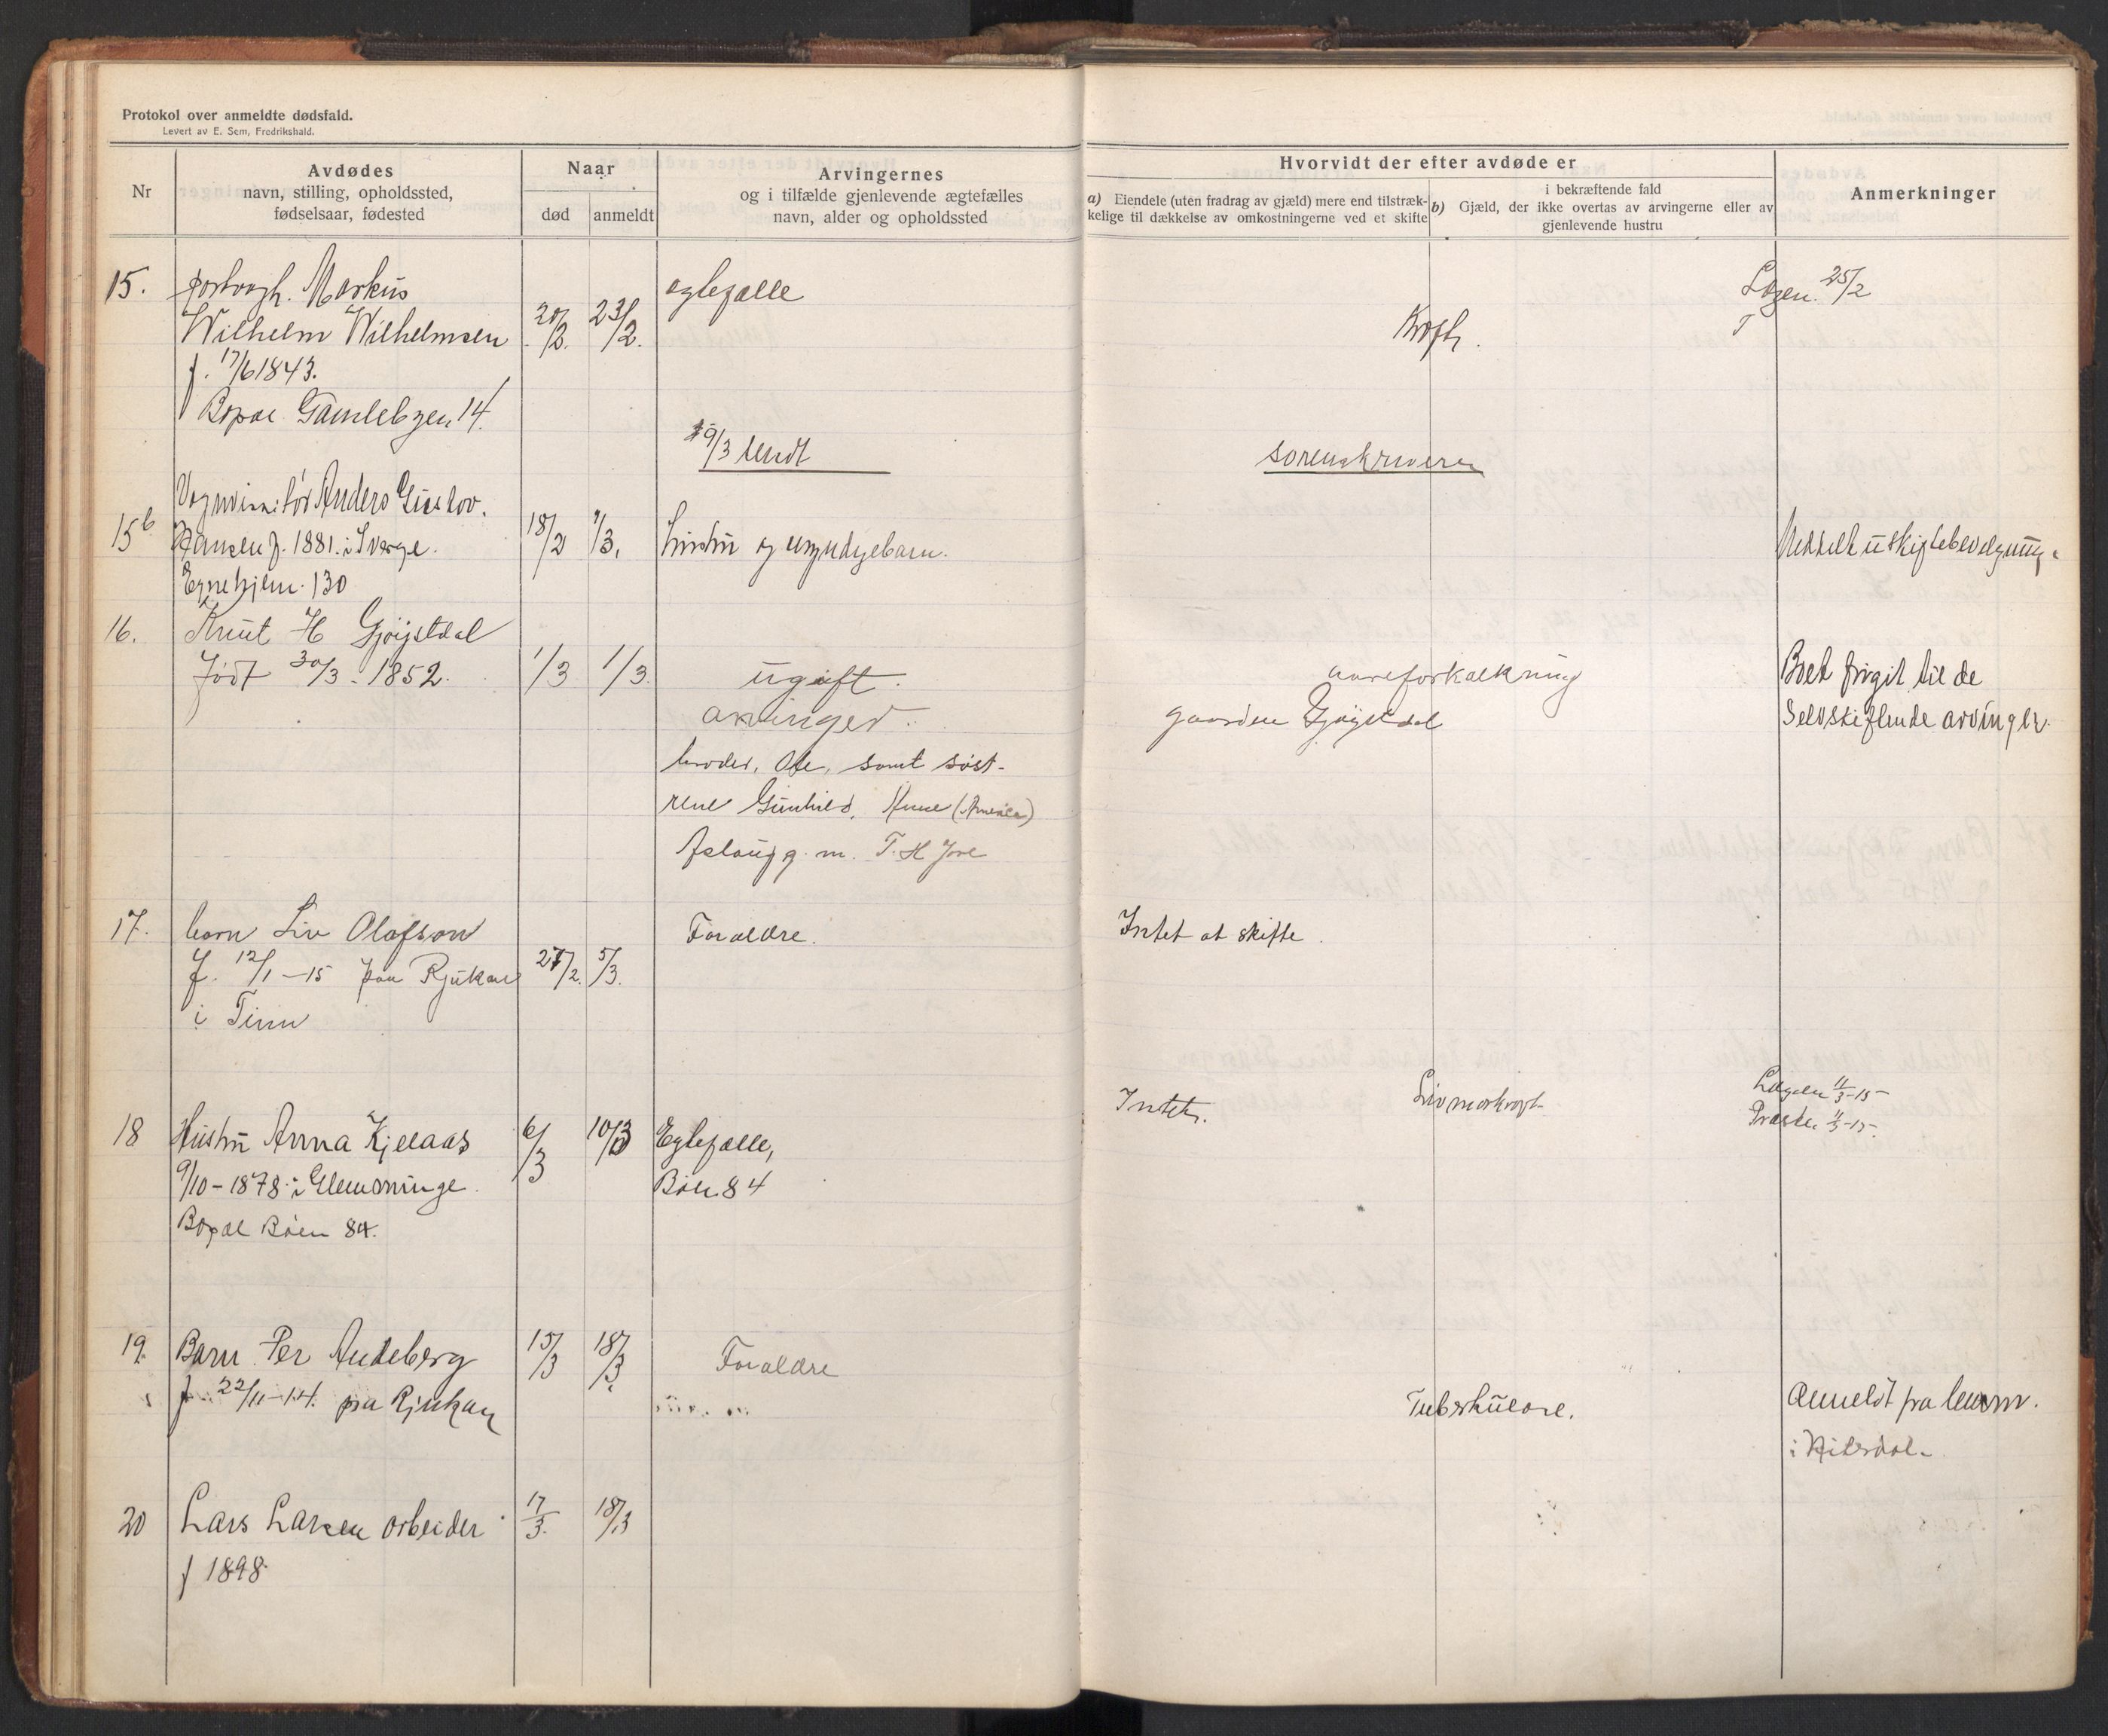 Protokol over anmeldte dødsfald.
Levert av E. Sem, Fredrikshald.
Nr
Avdødes
navn, stilling, opholdssted,
fødselsaar, fødested
Naar
død anmeldt
Arvingernes
og i tilfælde gjenlevende ægtefælles
navn, alder og opholdssted
Hvorvidt der efter avdøde er
a) Eiendele (uten fradrag av gjæld) mere end tilstræk-
kelige til dækkelse av omkostningerne ved et skifte
i bekræftende fald
b) Gjæld, der ikke overtas av arvingerne eller av
gjenlevende hustru
Anmerkninger
15. Markus
Wilhelm Wilhelmsen
f. 17/6 1843.
Bopæl Gamlebyen 14.
20/2. 23/2.
egtefælle
Kræft.
Lægen 25/2
19/3 sendt
sorenskriveren
15b Anders Gustov.
Hansen f. 1881. i Sverge.
Egnehjem. 130
18/2 1/3.
hustru og umyndige barn.
Meddelt uskiftebevilgning.
16. Knut H Gjøystdal
født 30/3 - 1852.
1/3 1/3.
ugift.
arvinger:
broder, Ole, samt søst-
rene Gunhild, Anne (Amerika)
Aslaug g. m. T. H Jore
aareforkalkning
gaarden Gjøystdal
Boet frigit til de
selvskiftende arvinger.
17. barn Liv Olafson
f. 12/1 - 15 paa Rjukan
i Tinn
27/2. 5/3.
Forældre.
Intet at skifte.
18 Hustru Anna Kjelaas
9/10 - 1878 i Glemminge.
Bopæl Bøen 84.
6/3 10/3
Egtefælle,
Bøen 84
Intet.
Livmorkræft
Lægen 11/3-15
Præsten 11/3-15.
19. Barn Per Andeberg
f. 22/11 - 14. paa Rjukan
15/3 18/3.
Forældre
Tuberkulose.
Anmeldt fra lensm.
i Hiterdal.
20 Lars Larsen arbeider
f 1898
17/3. 18/3